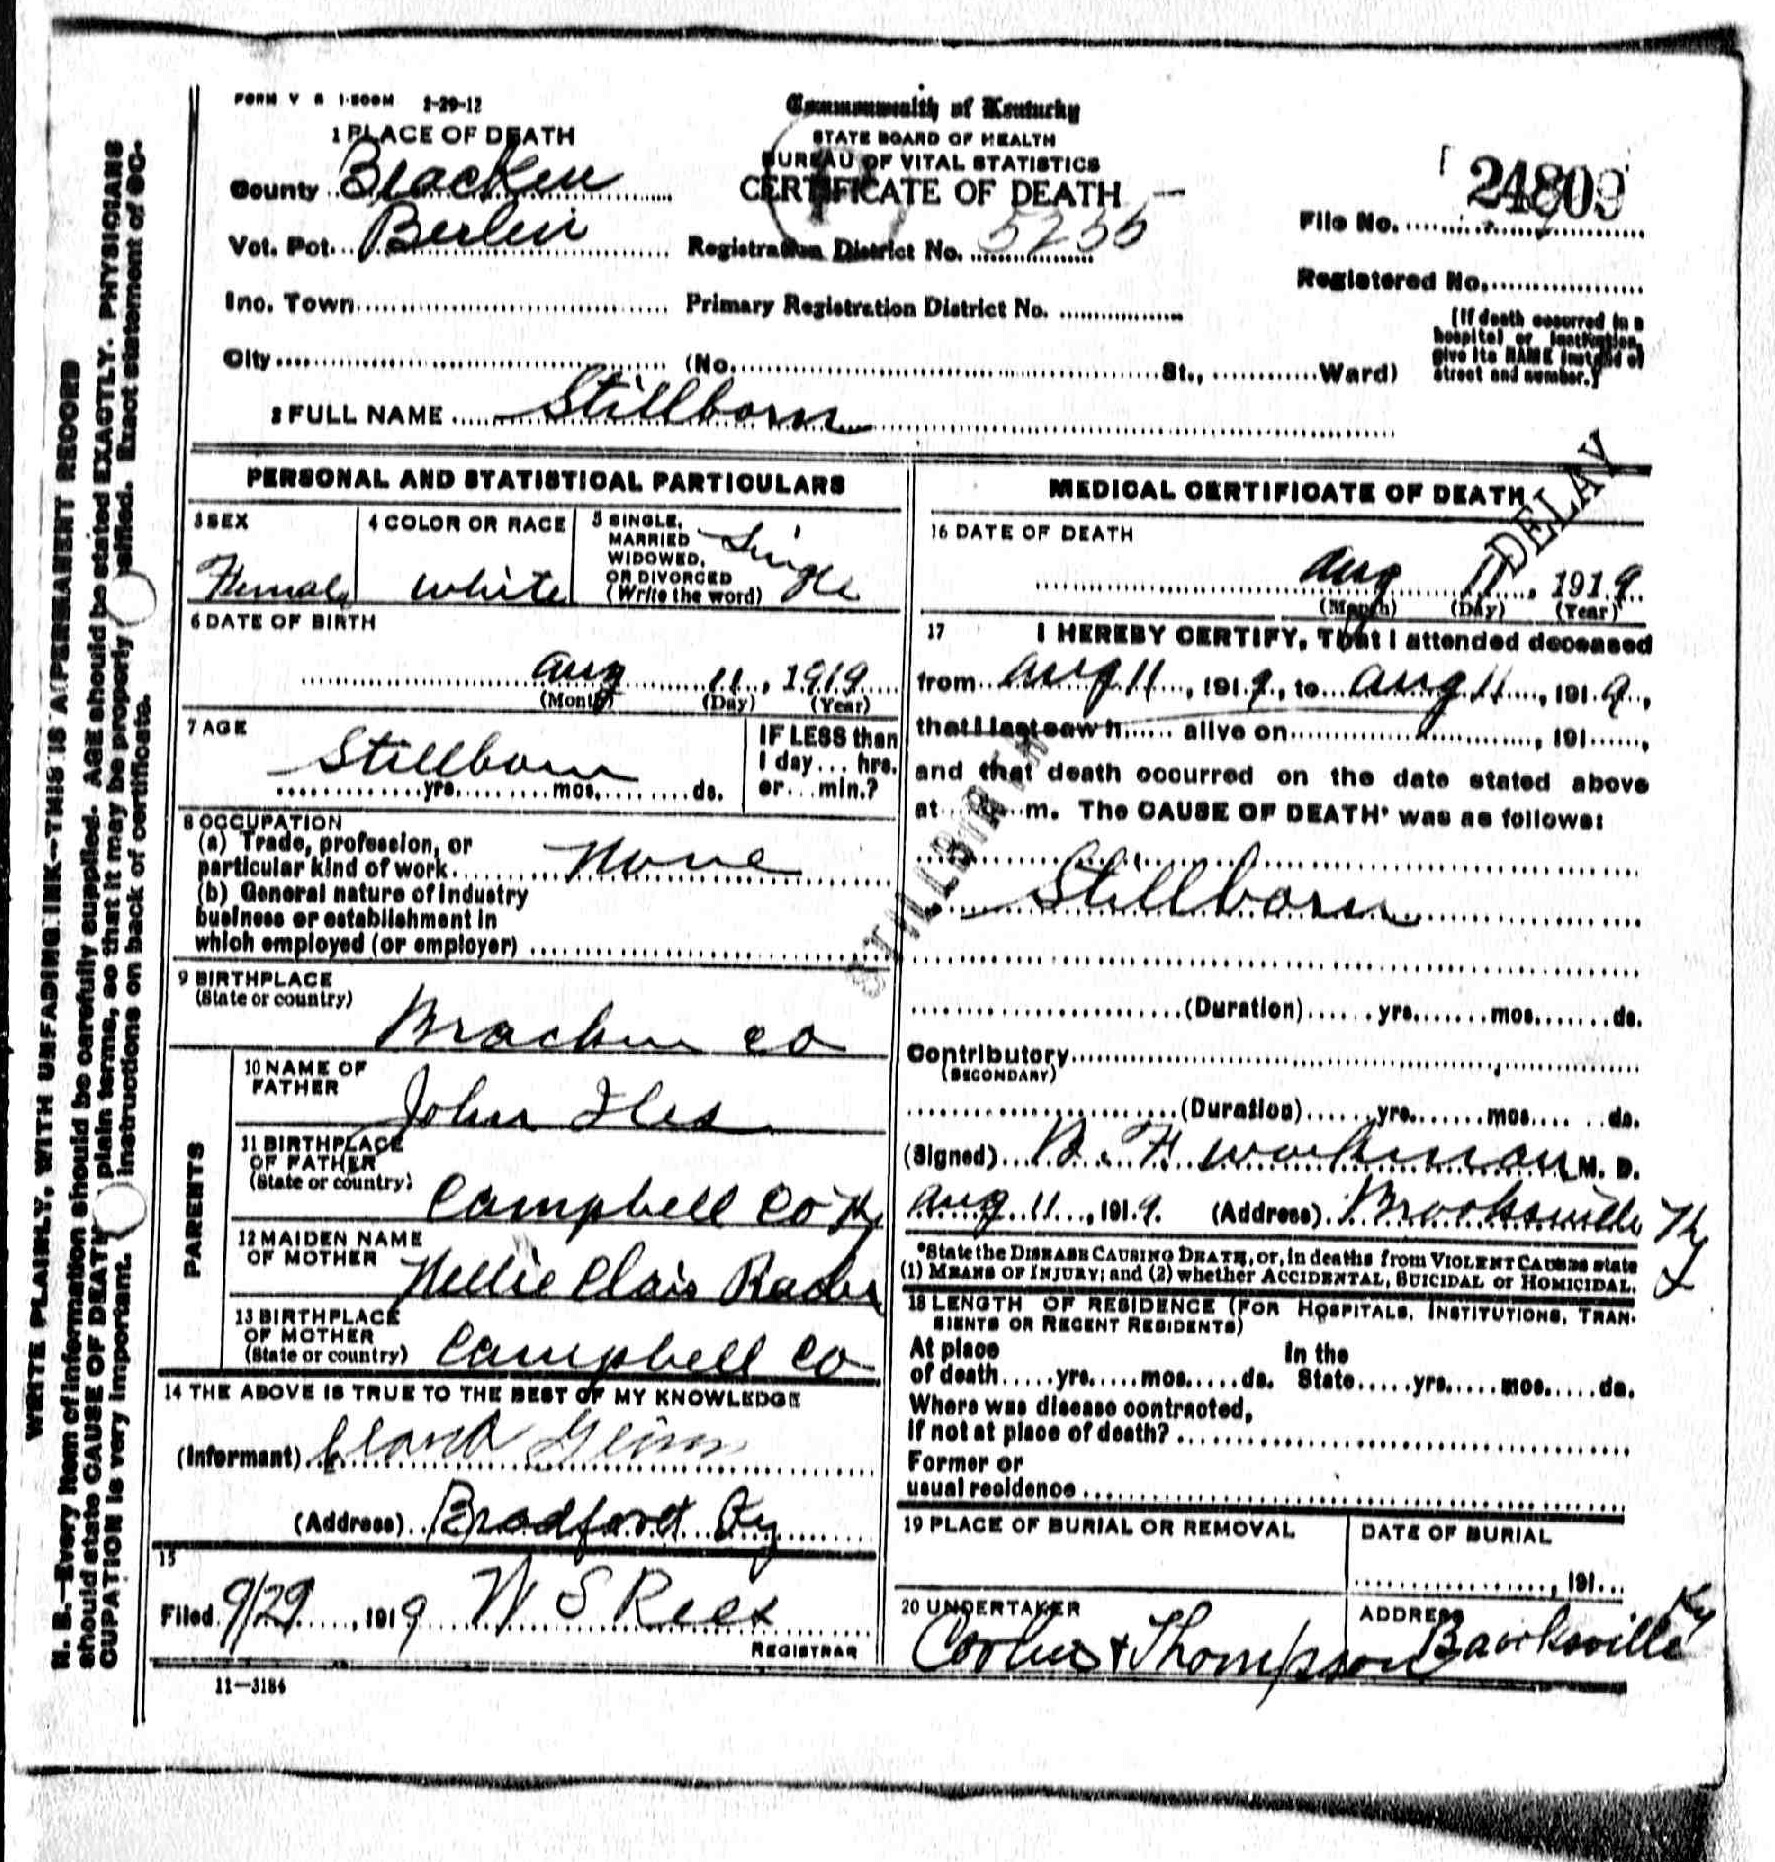 FORM V S 1-500M 2-29-12
Commonwealth of Kentucky
STATE BOARD OF HEALTH
BUREAU OF VITAL STATISTICS
CERTIFICATE OF DEATH
1 PLACE OF DEATH
County Bracken
Vot. Pct. Berlin
Registration District No. 5255
File No. 24809
Registered No.
Inc. Town
Primary Registration District No.
City (No. St., Ward)
(If death occurred in a
hospital or institution,
give its NAME instead of
street and number.)
2 FULL NAME Stillborn
PERSONAL AND STATISTICAL PARTICULARS
3 SEX
Female
4 COLOR OR RACE
White
5 SINGLE,
MARRIED
WIDOWED,
OR DIVORCED
(Write the word)
Single
6 DATE OF BIRTH
Aug 11, 1919
(Month) (Day) (Year)
7 AGE
Stillborn
yrs. mos. ds.
IF LESS than
1 day... hrs.
or... min.?
8 OCCUPATION
(a) Trade, profession, or
particular kind of work None
(b) General nature of industry
business or establishment in
which employed (or employer)
9 BIRTHPLACE
(State or country)
Bracken Co
PARENTS
10 NAME OF
FATHER
John Iles
11 BIRTHPLACE
OF FATHER
(State or country)
Campbell Co Ky
12 MAIDEN NAME
OF MOTHER
Nellie Clair Rader
13 BIRTHPLACE
OF MOTHER
(State or country)
Campbell Co
14 THE ABOVE IS TRUE TO THE BEST OF MY KNOWLEDGE
(Informant)
(Address) Bradford Ky
15
Filed 9/29, 1919 W S Rees
REGISTRAR
11—3184
MEDICAL CERTIFICATE OF DEATH
DELAY
16 DATE OF DEATH
Aug 11, 1919
(Month) (Day) (Year)
17 I HEREBY CERTIFY, That I attended deceased
from Aug 11, 1919, to Aug 11, 1919,
that I last saw h alive on , 191 ,
and that death occurred on the date stated above
at m. The CAUSE OF DEATH* was as follows:
STILLBIRTH
Stillborn
(Duration) yrs. mos. ds.
Contributory
(SECONDARY)
(Duration) yrs. mos. ds.
(Signed) W. F. Workman M. D.
Aug 11, 1919. (Address) Brooksville Ky
*State the DISEASE CAUSING DEATH, or, in deaths from VIOLENT CAUSES state
(1) MEANS OF INJURY; and (2) whether ACCIDENTAL, SUICIDAL or HOMICIDAL.
18 LENGTH OF RESIDENCE (FOR HOSPITALS, INSTITUTIONS, TRAN-
SIENTS OR RECENT RESIDENTS)
At place In the
of death yrs. mos. ds. State yrs. mos. ds.
Where was disease contracted,
if not at place of death?
Former or
usual residence
19 PLACE OF BURIAL OR REMOVAL
DATE OF BURIAL
, 191
20 UNDERTAKER
& Thompson
ADDRESS
Brooksville Ky
WRITE PLAINLY, WITH UNFADING INK—THIS IS A PERMANENT RECORD
N. B.—Every item of information should be carefully supplied. AGE should be stated EXACTLY. PHYSICIANS
should state CAUSE OF DEATH plain terms, so that it may be properly classified. Exact statement of OC-
CUPATION is very important. instructions on back of certificate.